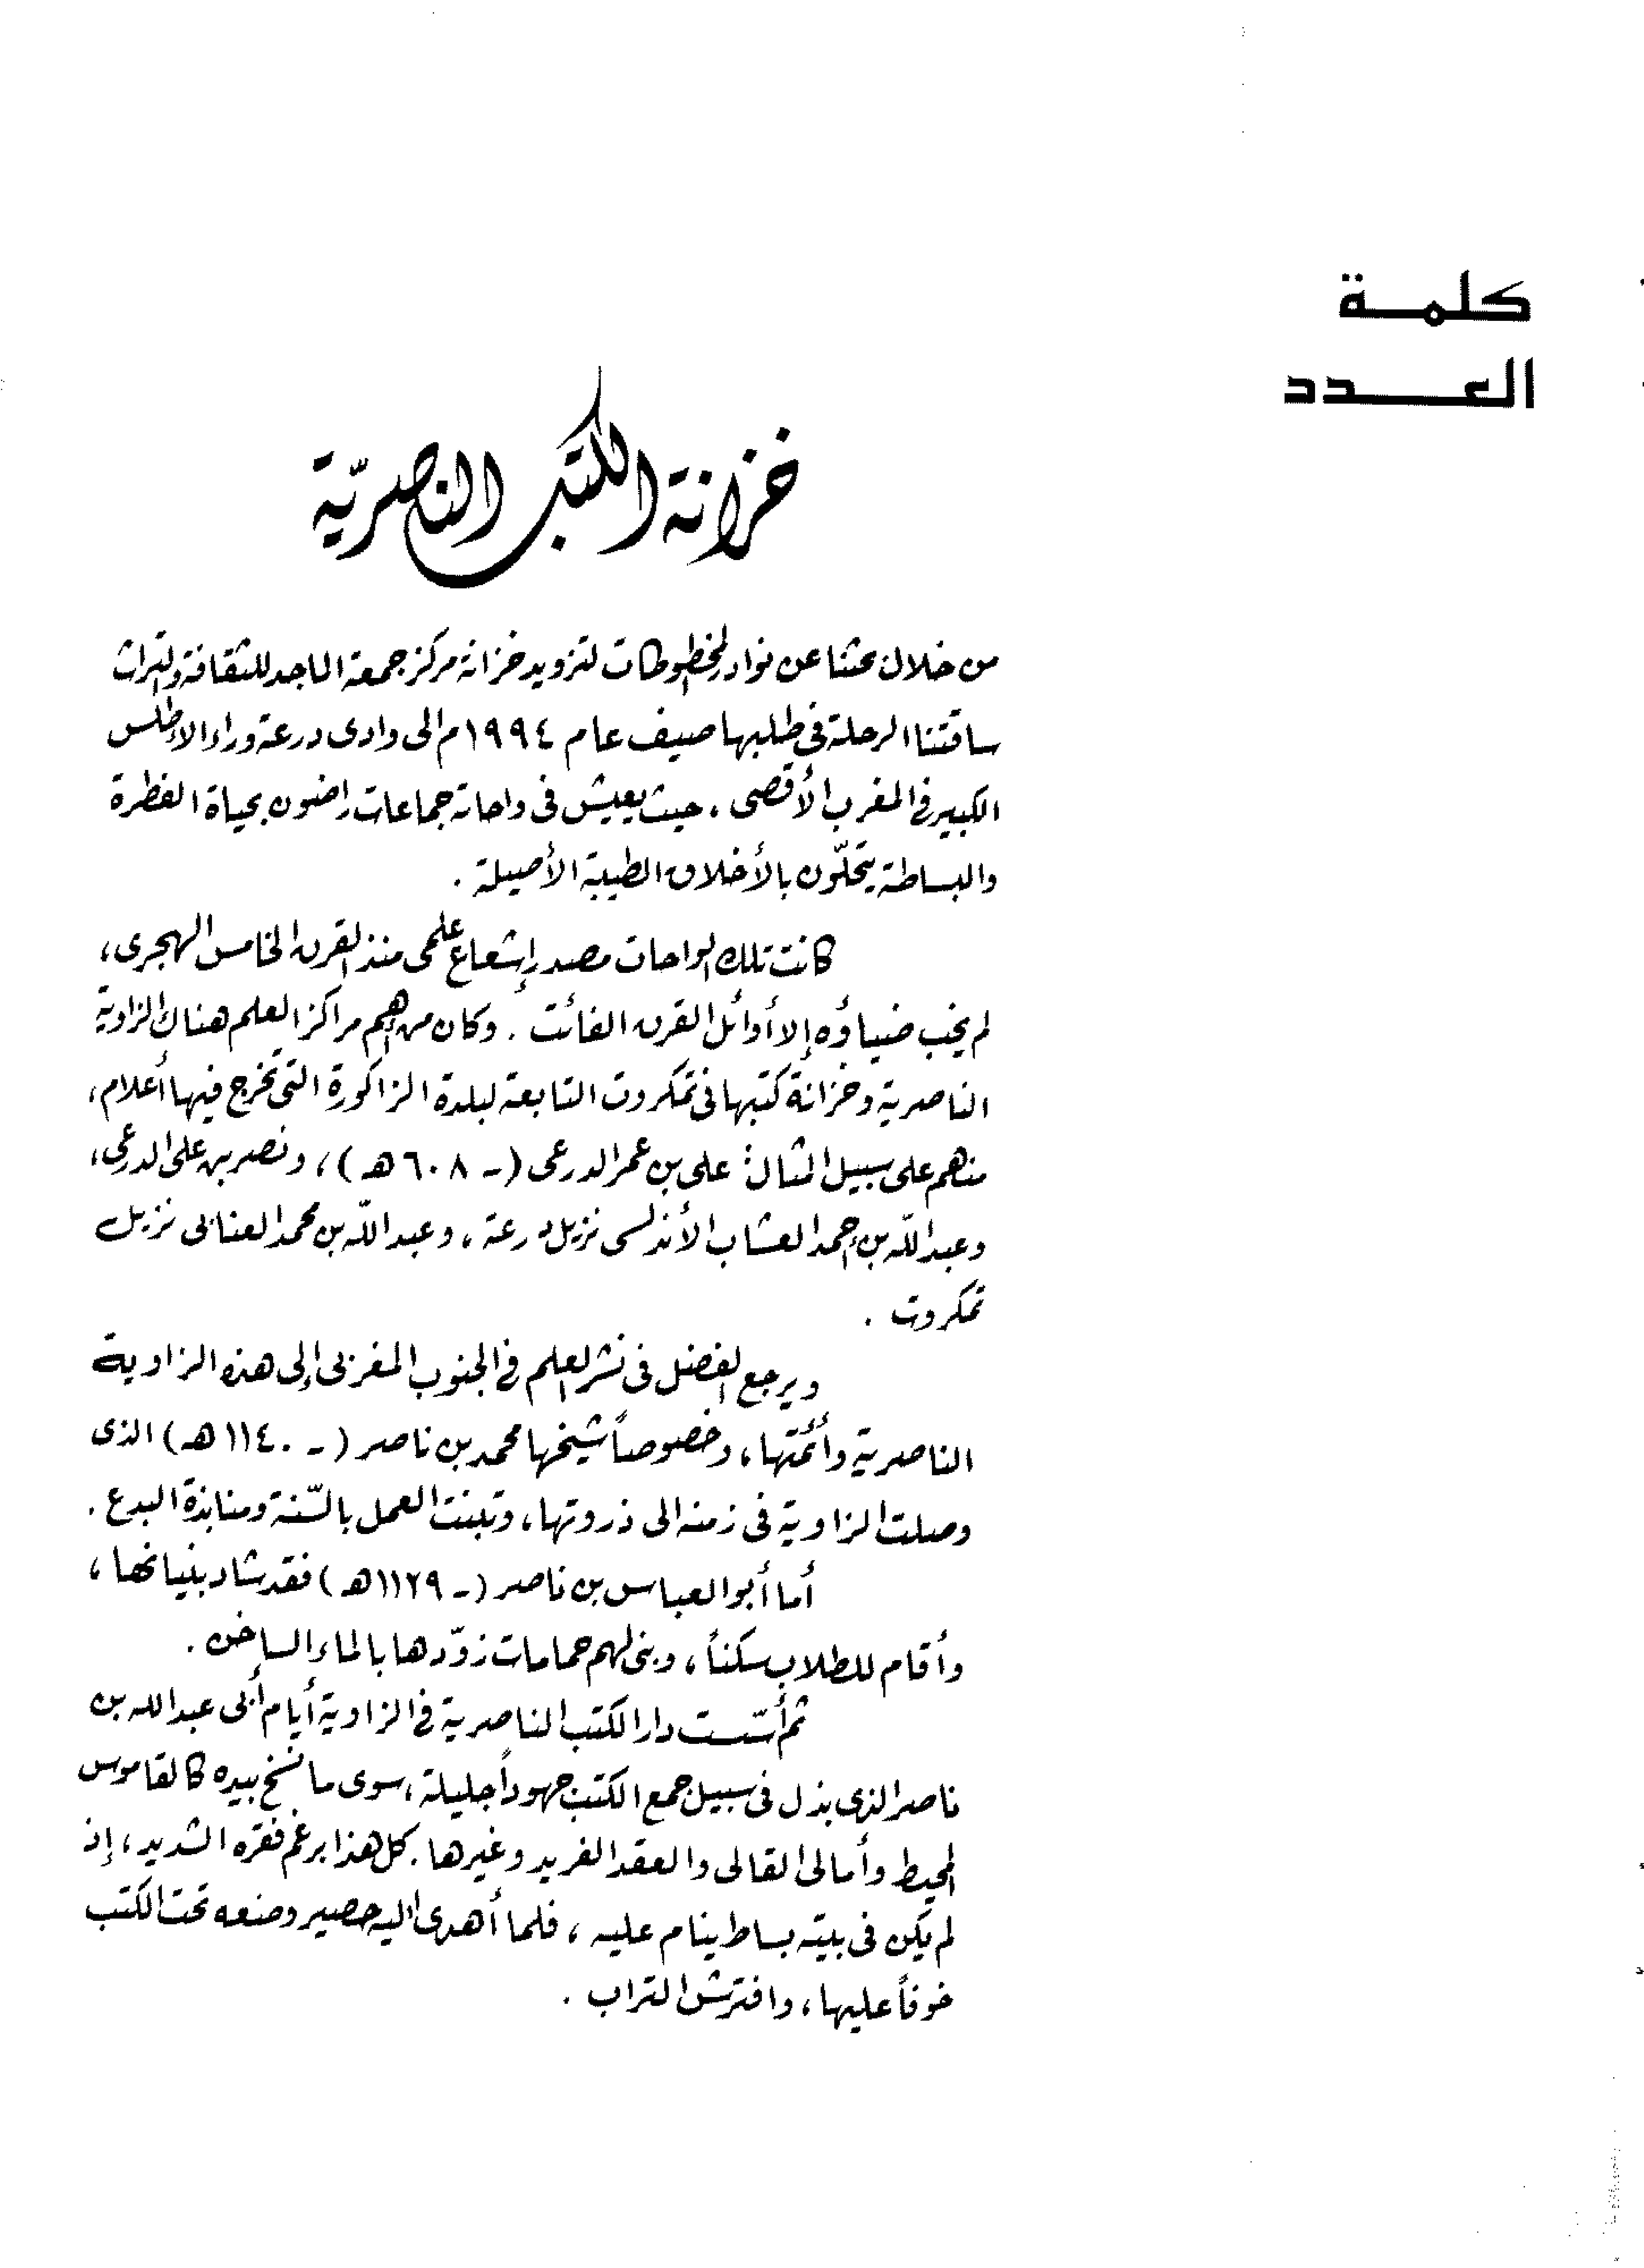 كلمة
العدد
خزانة الكتب الناصريّة
من خلال بحثنا عن نوادر المخطوطات لتزويد خزانة مركز جمعة الماجد للثقافة والتراث
ساقتنا الرحلة في طلبها صيف عام ١٩٩٤م الى وادى درعة وراء الاطلس
الكبير في المغرب الأقصى ، حيث يعيش فى واحاته جماعات راضون بحياة الفطرة
والبساطة يتحلّون بالأخلاق الطيبة الأصيلة .
كانت تلك الواحات مصدر إشعاع علمى منذ القرن الخامس الهجرى ،
لم يخب ضياؤه إلا أوائل القرن الفائت . وكان من أهم مراكز العلم هناك الزاوية
الناصرية وخزانة كتبها فى تمكروت التابعة لبلدة الزاكورة التى تخرج فيها أعلام ،
منهم على سبيل المثال : على بن عمر الدرعى ( ـ ٦٠٨ هـ ) ، ونصر بن على الدرعى ،
وعبد اللّه بن أحمد العشاب الأندلسى نزيل درعة ، وعبد اللّه بن محمد العنابى نزيل
تمكروت .
ويرجع الفضل فى نشر العلم فى الجنوب المغربى إلى هذه الزاوية
الناصرية وأئمتها ، وخصوصاً شيخها محمد بن ناصر ( ـ ١١٤٠ هـ ) الذى
وصلت الزاوية فى زمنه الى ذروتها ، وتبنت العمل بالسّنة ومنابذة البدع .
أما أبو العباس بن ناصر ( ـ ١١٢٩ هـ ) فقد شاد بنيانها ،
وأقام للطلاب سكناً ، وبنى لهم حمامات زوّدها بالماء الساخن .
ثم أسّست دار الكتب الناصرية فى الزاوية أيام أبى عبد الله بن
ناصر الذى بذل فى سبيل جمع الكتب جهوداً جليلة ، سوى ما نسخ بيده كالقاموس
المحيط وأمالى القالى والعقد الفريد وغيرها . كل هذا برغم فقره الشديد ، إذ
لم يكن فى بيته بساط ينام عليه ، فلما أهدى اليه حصير وضعه تحت الكتب
خوفاً عليها ، وافترش التراب .